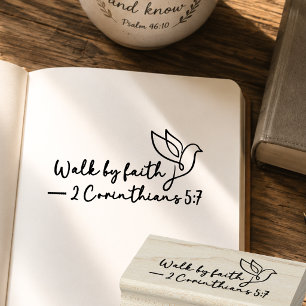 and know
Psalm 46:10
Walk by faith
— 2 Corinthians 5:7
Walk by faith
— 2 Corinthians 5:7